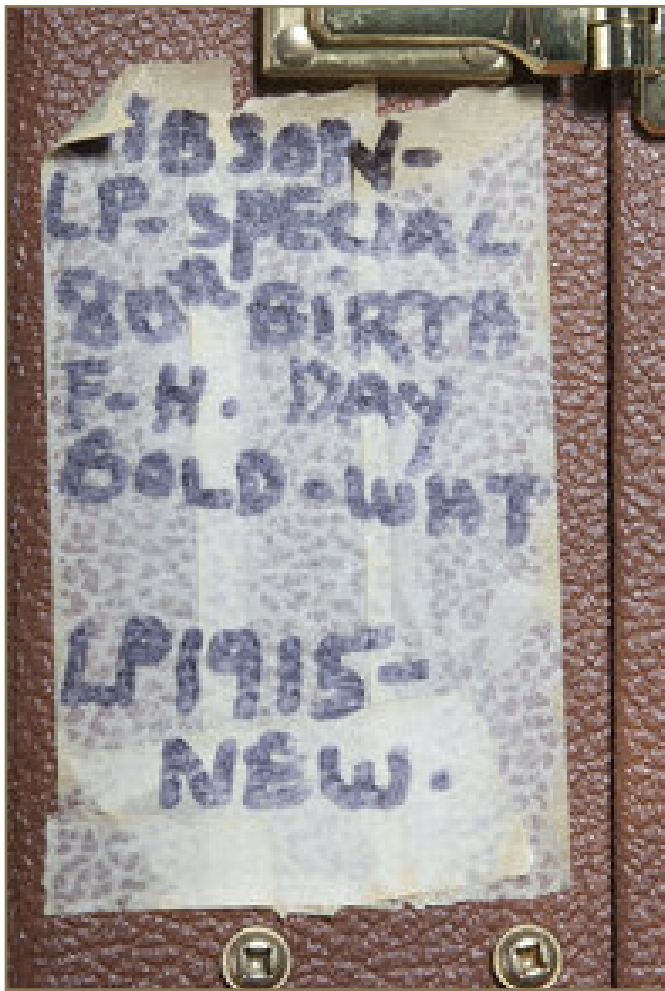 IBSON-
LP-SPECIAL
80TH BIRTH
F-H. DAY
GOLD-WHT
LP1915-
NEW.